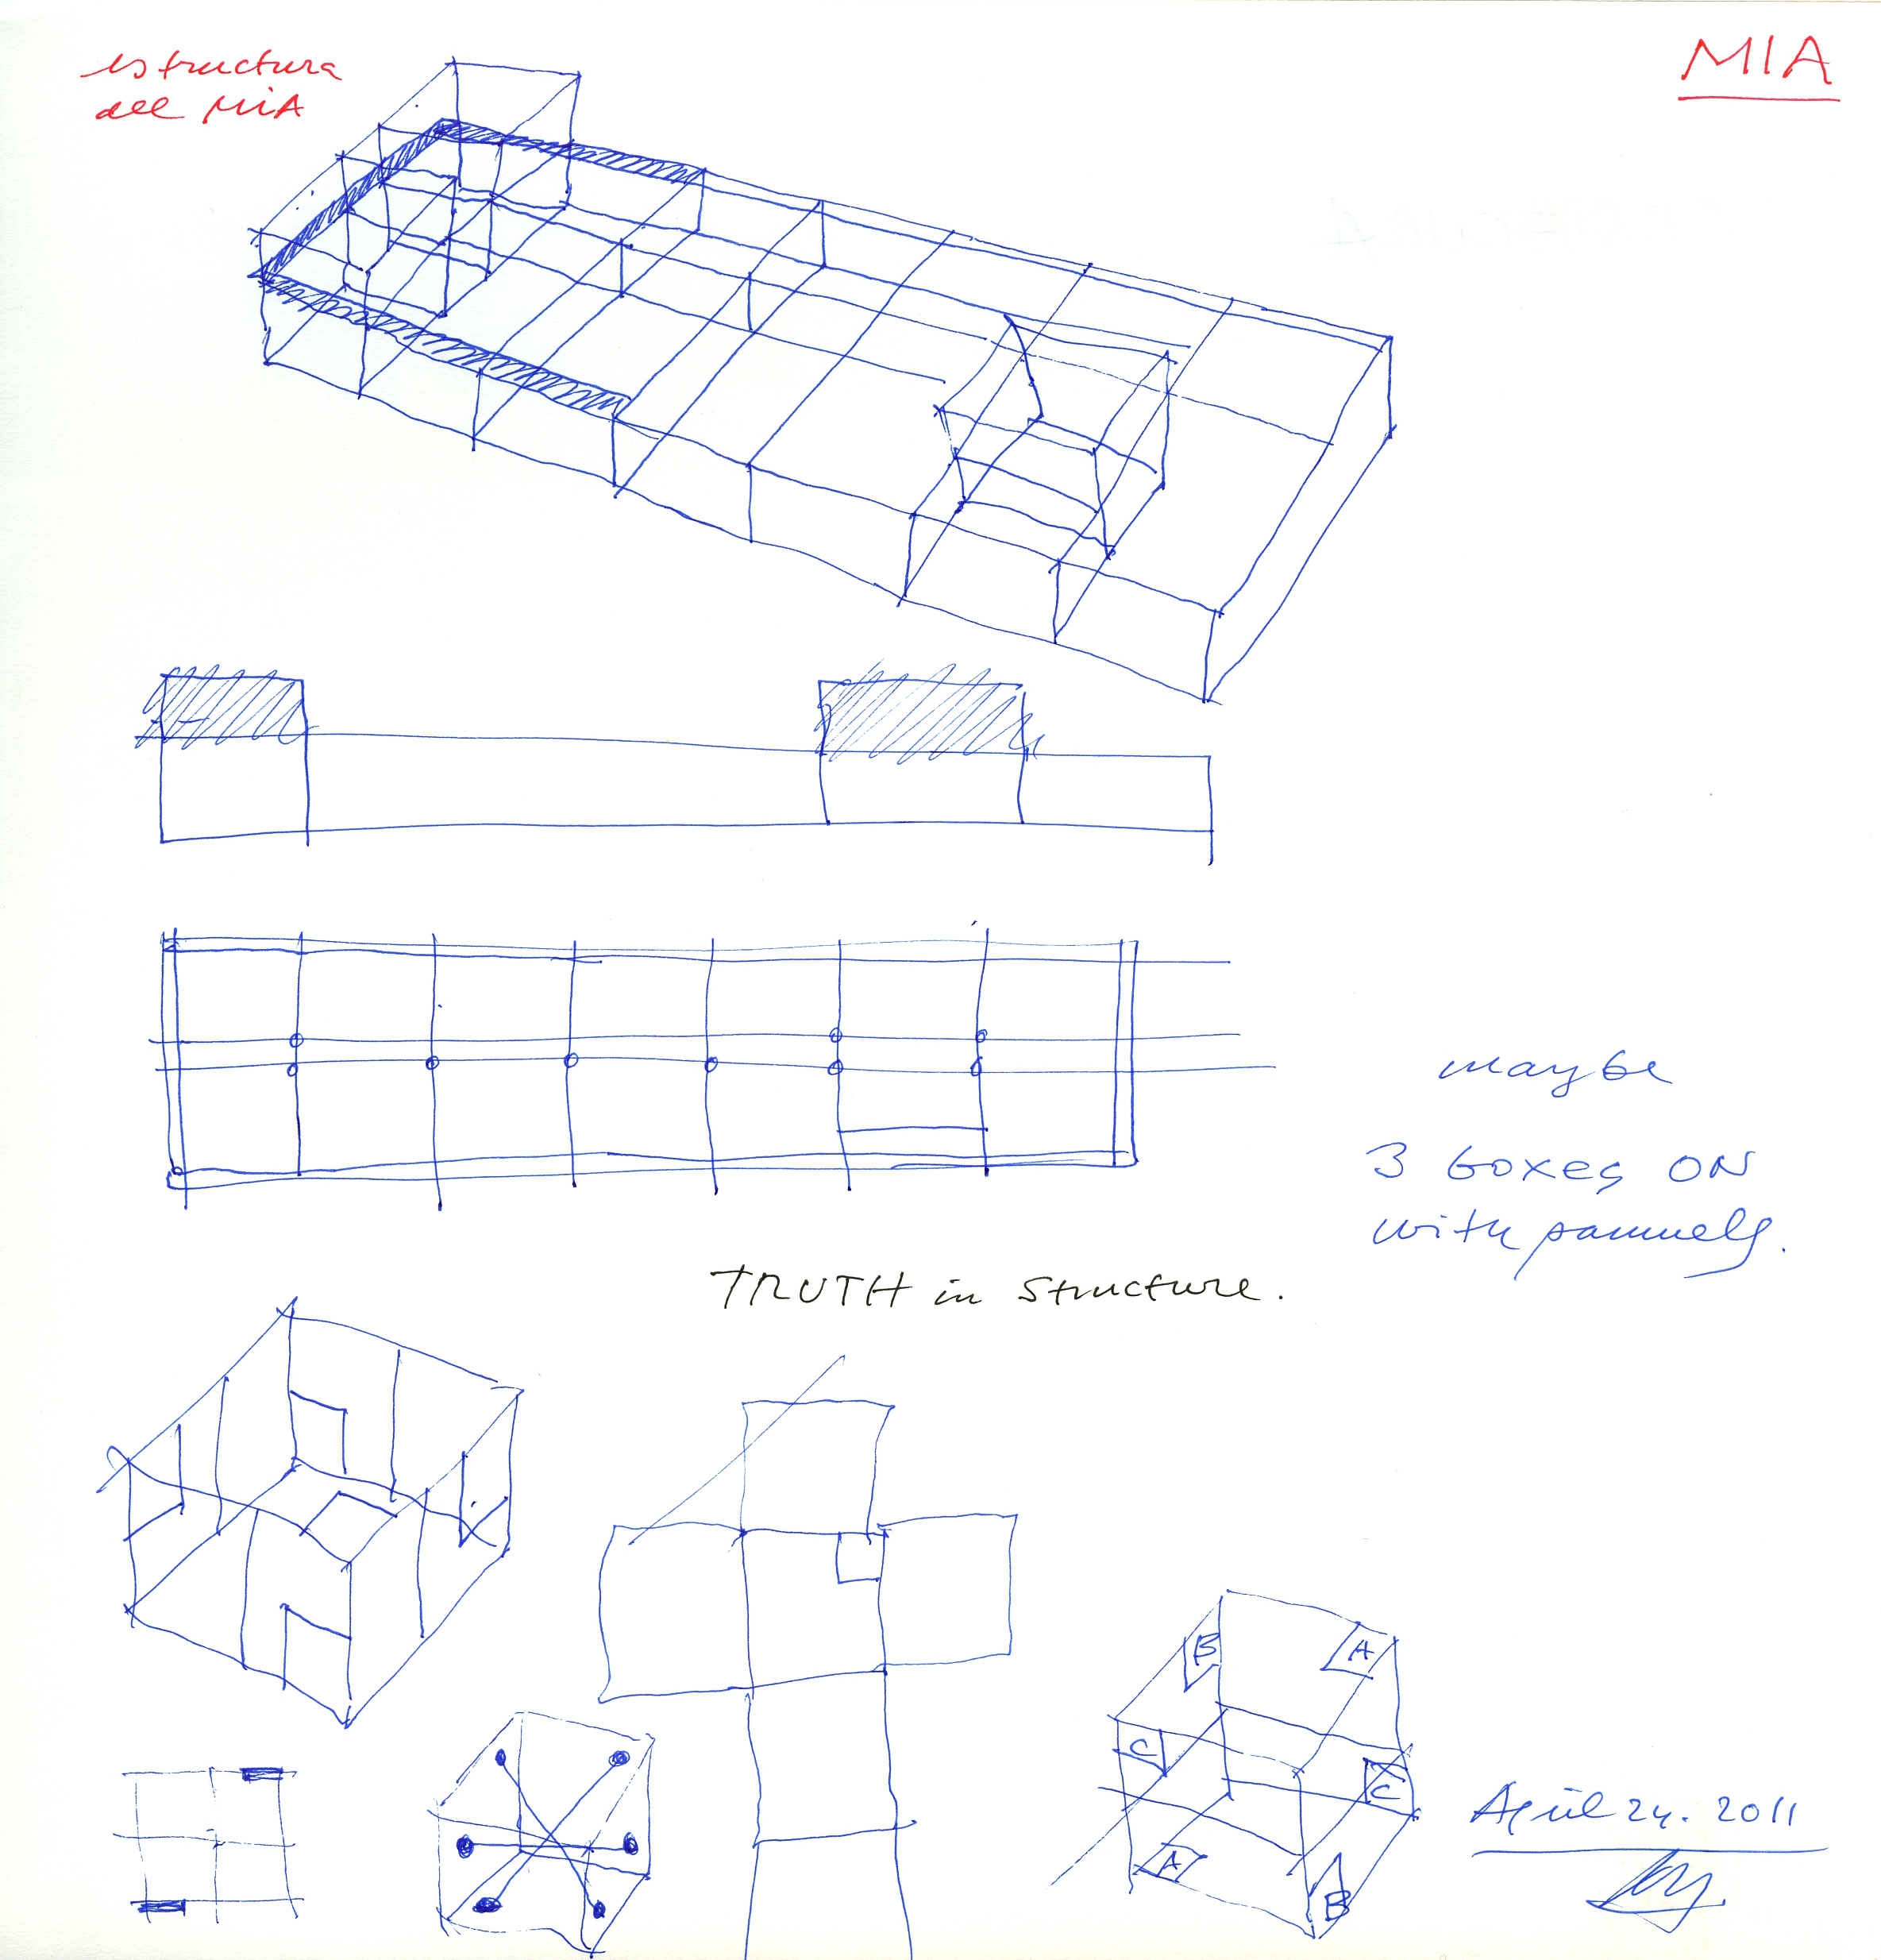 estructura
del MiA
MIA
maybe
3 boxes ON
with pannels.
TRUTH in structure.
B
A
C
C
A
B
April 24. 2011